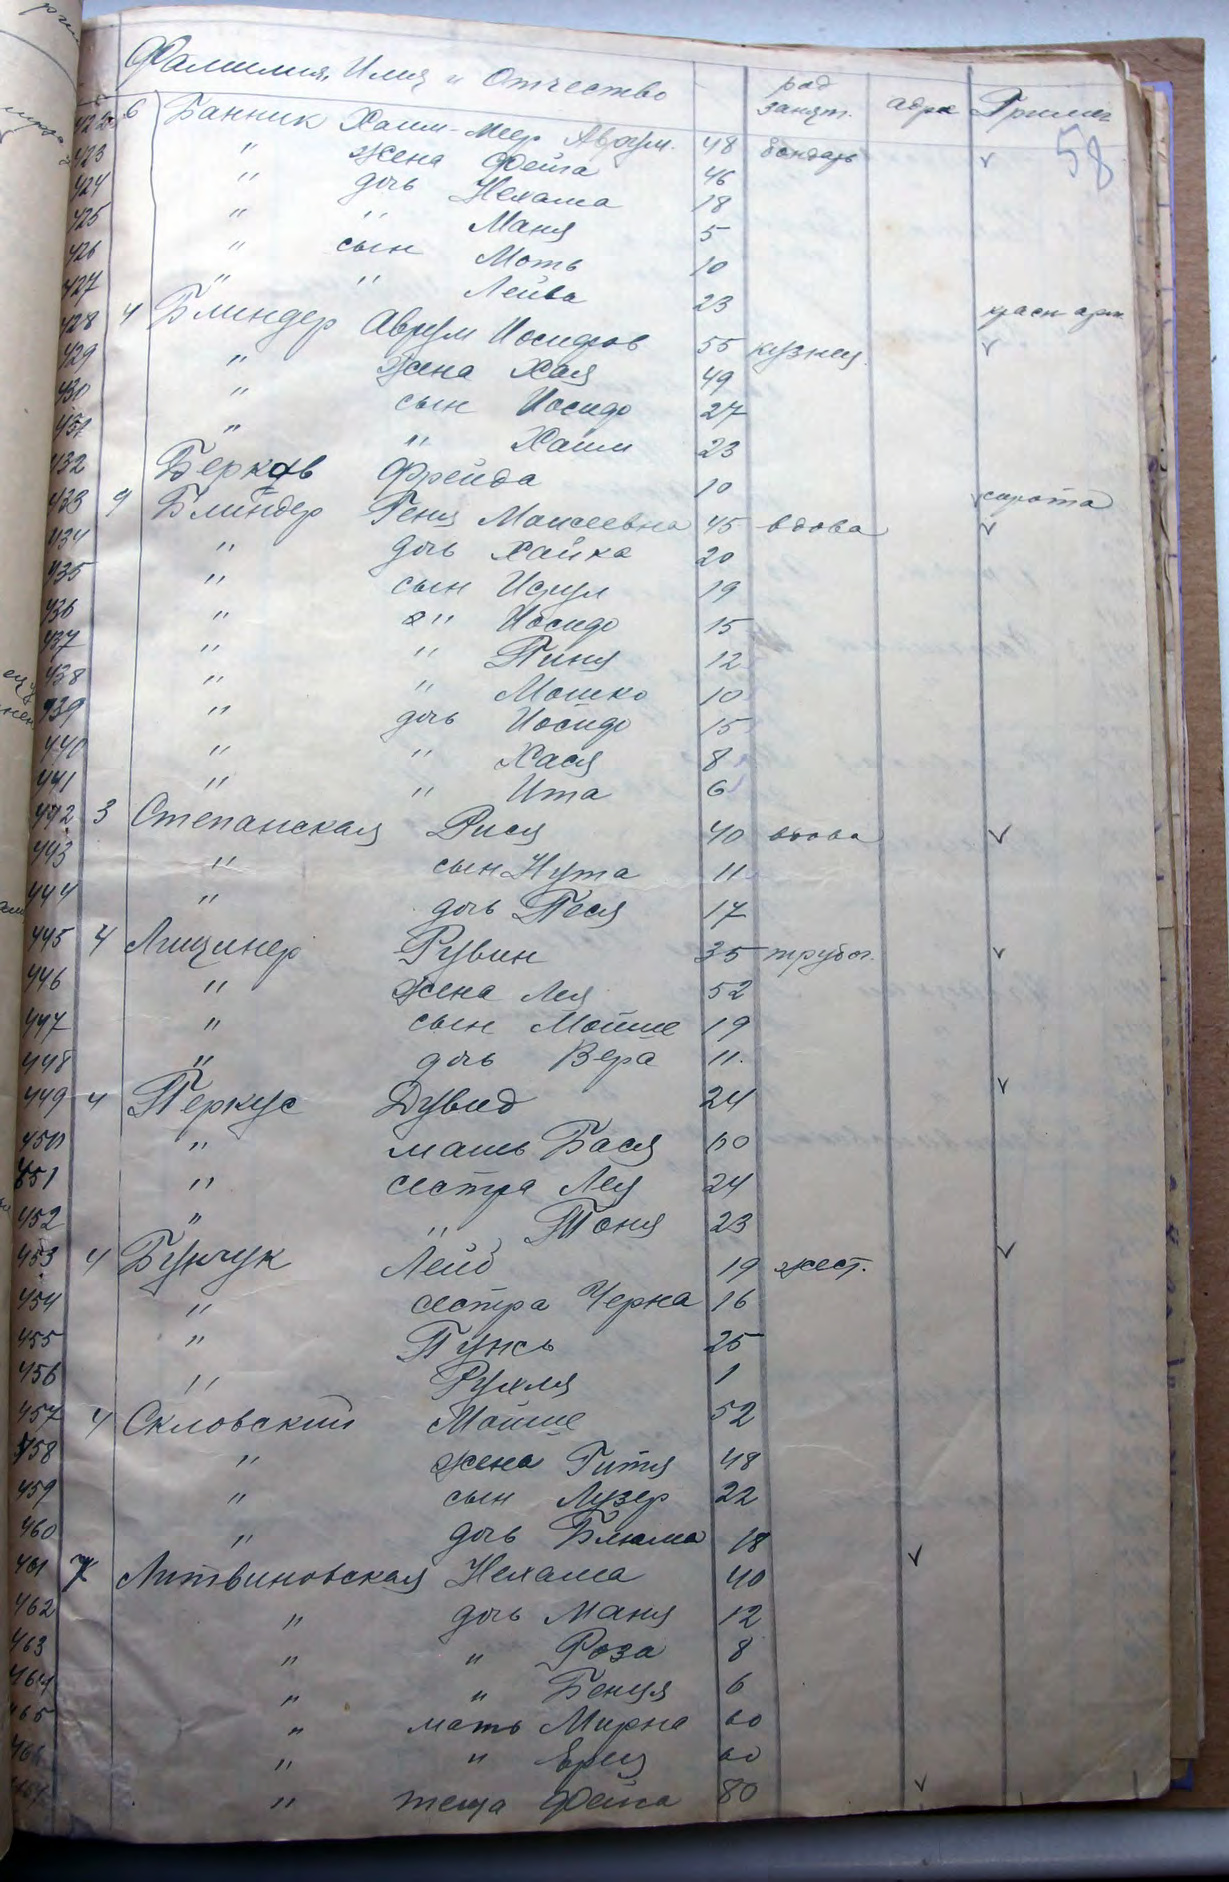 Фамилия, Имя и Отчество род занят. адре Примеч
58
422 6 Банник Хаим-Меер Аврум. 48 бондарь v
423 " жена Фейга 46
424 " дочь Нехама 18
425 " " Маня 5
426 " сын Моть 10
427 " " Лейва 23 красн арм
428 4 Блиндер Аврум Иосифов 55 кузнец. v
429 " жена Хая 49
430 " сын Иосиф 27
431 " " Хаим 23
432 Берков Фрейда 10 v сирота
433 9 Блиндер Геня Моисеевна 45 вдова v
434 " дочь Хайка 20
435 " сын Исрул 19
436 " " Иосиф 15
437 " " Пиня 12
438 " " Мошко 10
439 " дочь Иосиф 15
440 " " Хася 8
441 " " Ита 6
442 3 Степанская Рися 40 вдова v
443 " сын Нута 11
444 " дочь Песя 17
445 4 Лищинер Рувин 35 трубоч. v
446 " жена Лея 52
447 " сын Мойше 19
448 " дочь Вера 11.
449 4 Перкус Дувид 24 v
450 " мать Бася 60
451 " сестра Лея 24
452 " " Тоня 23
453 4 Бунчук Лейб 19 жест. v
454 " сестра Черна 16
455 " Пунсь 25
456 " Рухля 1
457 4 Скловский Мойше 52
458 " жена Гитя 48
459 " сын Лузер 22
460 " дочь Блюма 18
461 7 Литвиновская Нехама 40 v
462 " дочь Маня 12
463 " " Роза 8
464 " " Бенця 6
465 " мать Мирна 60
466 " " 60
" теща Фейга 80 v